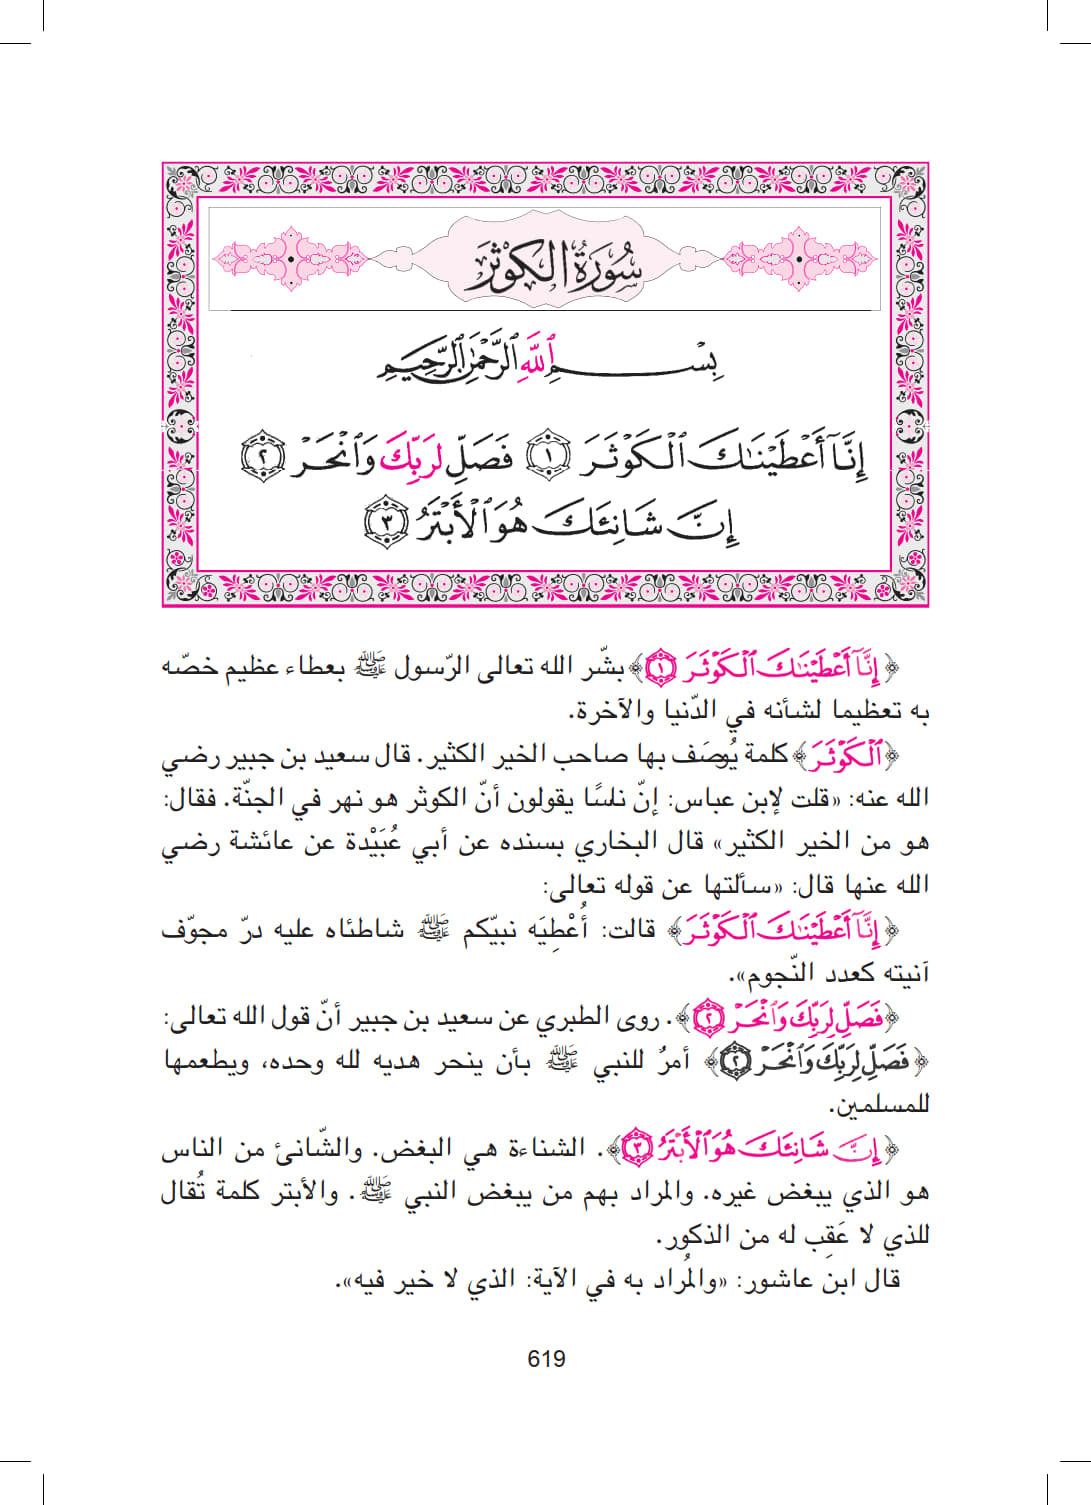 سُورَةُ الكَوْثَرِ
بِسْمِ اللَّهِ الرَّحْمَٰنِ الرَّحِيمِ
إِنَّآ أَعْطَيْنَٰكَ ٱلْكَوْثَرَ ۝١ فَصَلِّ لِرَبِّكَ وَٱنْحَرْ ۝٢
إِنَّ شَانِئَكَ هُوَ ٱلْأَبْتَرُ ۝٣
﴿إِنَّآ أَعْطَيْنَٰكَ ٱلْكَوْثَرَ ۝١﴾ بشّر الله تعالى الرّسول ﷺ بعطاء عظيم خصّه
به تعظيما لشأنه في الدّنيا والآخرة.
﴿ٱلْكَوْثَرَ﴾ كلمة يُوصَف بها صاحب الخير الكثير. قال سعيد بن جبير رضي
الله عنه: «قلت لإبن عباس: إنّ ناسًا يقولون أنّ الكوثر هو نهر في الجنّة. فقال:
هو من الخير الكثير» قال البخاري بسنده عن أبي عُبَيْدة عن عائشة رضي
الله عنها قال: «سألتها عن قوله تعالى:
﴿إِنَّآ أَعْطَيْنَٰكَ ٱلْكَوْثَرَ﴾ قالت: أُعْطِيَه نبيّكم ﷺ شاطئاه عليه درّ مجوّف
آنيته كعدد النّجوم».
﴿فَصَلِّ لِرَبِّكَ وَٱنْحَرْ ۝٢﴾. روى الطبري عن سعيد بن جبير أنّ قول الله تعالى:
﴿فَصَلِّ لِرَبِّكَ وَٱنْحَرْ ۝٢﴾ أمرُ للنبي ﷺ بأن ينحر هديه لله وحده، ويطعمها
للمسلمين.
﴿إِنَّ شَانِئَكَ هُوَ ٱلْأَبْتَرُ ۝٣﴾. الشناءة هي البغض. والشّانئ من الناس
هو الذي يبغض غيره. والمراد بهم من يبغض النبي ﷺ. والأبتر كلمة تُقال
للذي لا عَقِب له من الذكور.
قال ابن عاشور: «والمُراد به في الآية: الذي لا خير فيه».
619